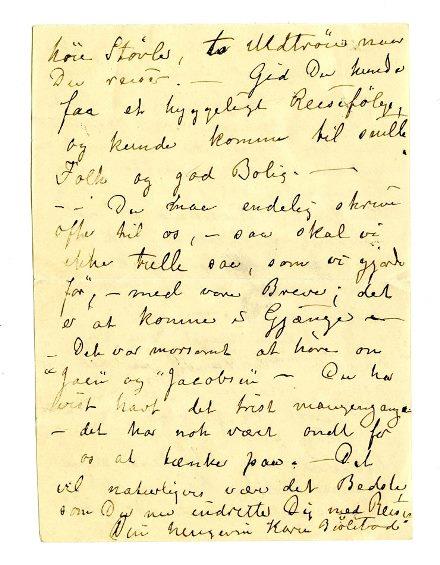 høie Støvler, to Uldtrøier naar
Du reiser. — Gid Du kunde
faa et hyggeligt Reisefølge,
og kunde komme til snille
Folk og god Bolig. —
— Du maa endelig skrive
ofte til os, — saa skal vi
ikke trille saa, som vi gjorde
før, — med vore Breve; det
er at komme i Gjænge —
— Det var morsomt at høre om
"Jaen" og "Jacobsen" — Du har
vist havt det trist mangengang
— det har nok været ondt for
os at tænke paa. — Det
vil naturligvis være det Bedste,
som Du nu indretter Dig med Reisen
Din hengivne Karen